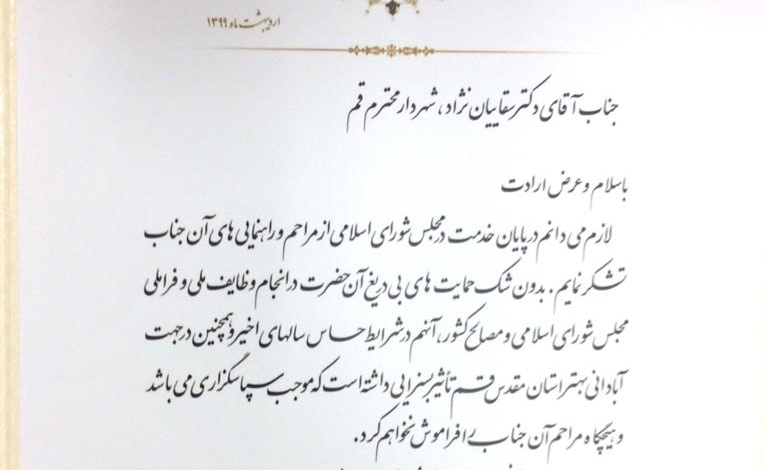 اردیبهشت ماه ۱۳۹۹
جناب آقای دکتر سقاییان نژاد، شهردار محترم قم
باسلام و عرض ارادت
لازم می دانم در پایان خدمت در مجلس شورای اسلامی از مراحم و راهنمایی های آن جناب
تشکر نمایم. بدون شک حمایت های بی دریغ آن حضرت در انجام وظایف ملی و فراملی
مجلس شورای اسلامی و مصالح کشور، آنهم در شرایط حساس سالهای اخیر و همچنین در جهت
آبادانی بهتر استان مقدس قم تأثیر بسزایی داشته است که موجب سپاسگزاری می باشد
و هیچگاه مراحم آن جناب را فراموش نخواهم کرد.